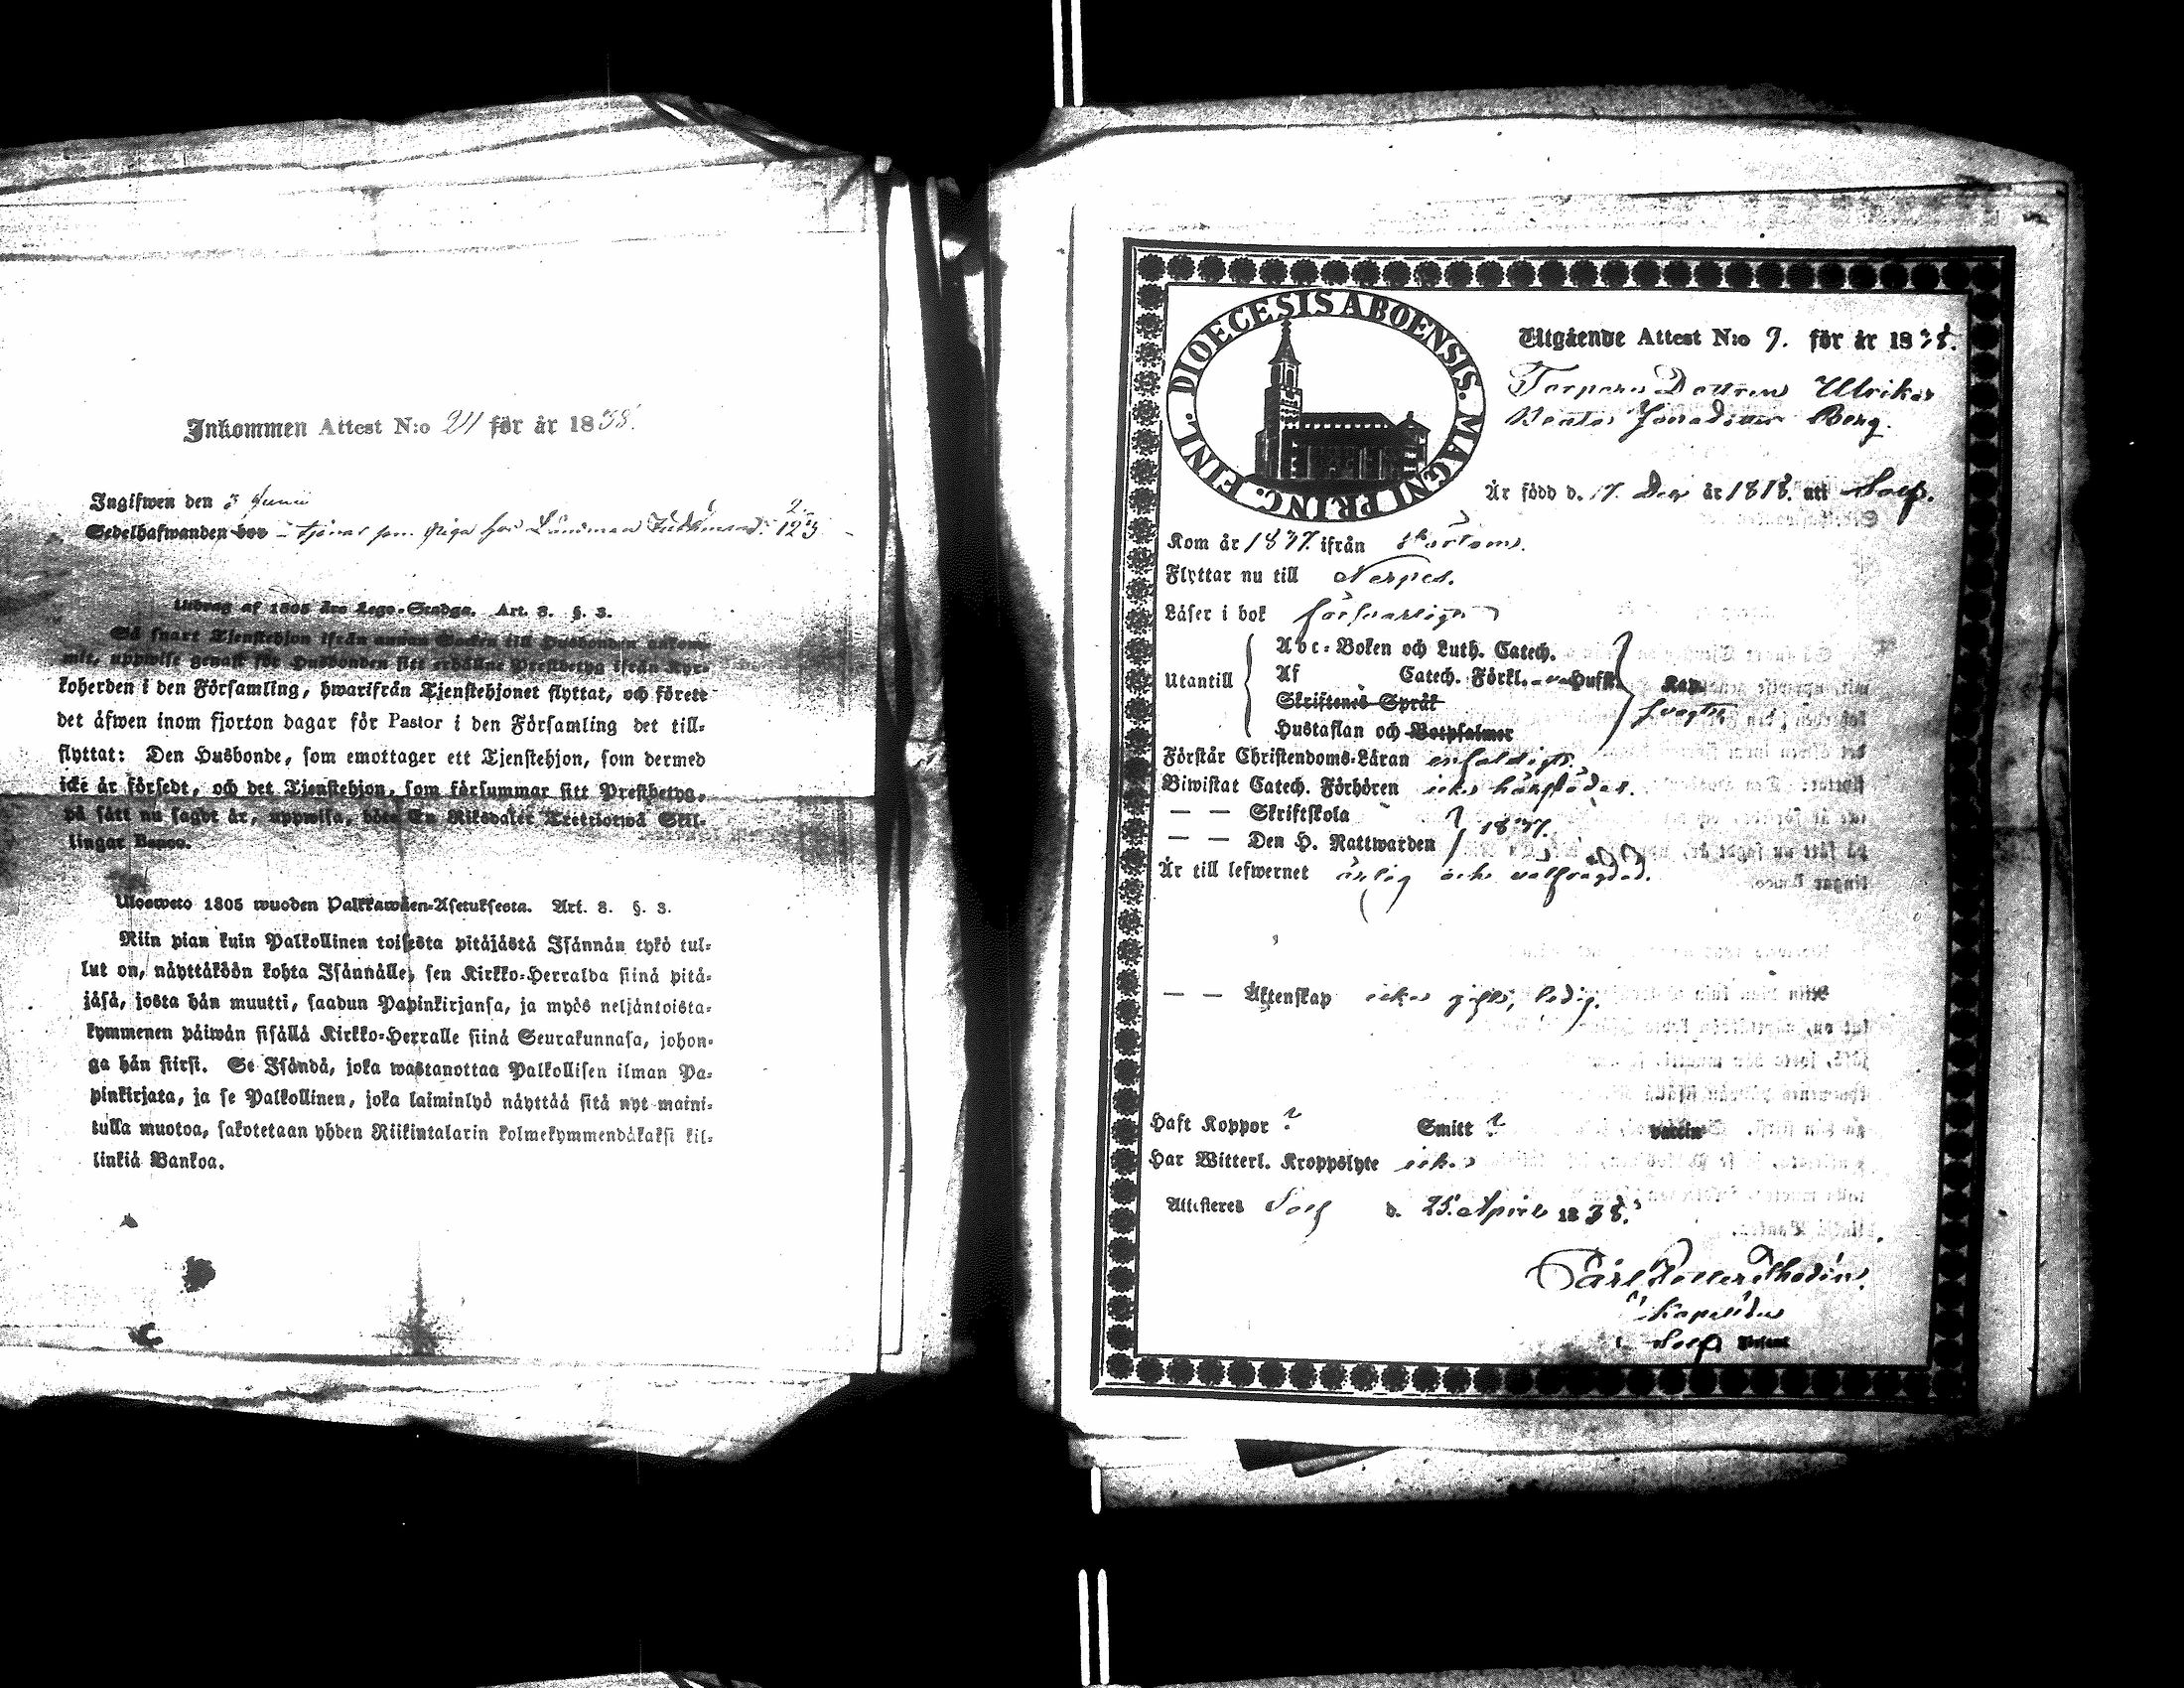 Inkommen Attest N:o 21 för år 1838.
Ingifwen den 3 Junii
Sedelhafwanden bor tjenar som piga hos Länsman 123
Utdrag af 1805 års Lego-Stadga. Art. 8. §. 3.
Så snart Tjenstehjon ifrån annan Socken till Husbonden ankom-
mit, uppwise genast för Husbonden sitt erhållne Prestbetyg ifrån Kyr-
koherden i den Församling, hwarifrån Tjenstehjonet flyttat, och förete
det åfwen inom fjorton dagar för Pastor i den Församling det till-
flyttat: Den Husbonde, som emottager ett Tjenstehjon, som dermed
icke är försedt, och det Tjenstehjon, som försummar sitt Prestbetyg,
på sätt nu sagdt är, uppwisa, böte En Riksdaler Trettiotwå Skil-
lingar Banco.
Ulosweto 1805 wuoden Palkkawäen-Asetuksesta. Art. 8. §. 3.
Niin pian kuin Palkollinen toisesta pitäjästä Isännän tykö tul-
lut on, näyttäköön kohta Isännälle, sen Kirkko-Herralda siinä pitä-
jäsä, josta hän muutti, saadun Papinkirjansa, ja myös neljäntoista-
kymmenen päiwän sisällä Kirkko-Herralle siinä Seurakunnasa, johon-
ga hän siirsi. Se Isändä, joka wastanottaa Palkollisen ilman Pa-
pinkirjata, ja se Palkollinen, joka laiminlyö näyttää sitä nyt maini-
tulla muotoa, sakotetaan yhden Riikintalarin kolmekymmendäkaksi kil-
linkiä Bankoa.
DIOECESIS ABOENSIS. MAGNI PRINC. FINL.
Utgående Attest N:o 9. för år 1838.
Torpare Dottren Ulrika
Beata Jonasdotter Berg.
Är född d. 17. Dec år 1818. uti Solf.
Kom år 1837. ifrån Pörtom.
Flyttar nu till Nerpes.
Läser i bok försvarligt
Utantill
Abc-Boken och Luth. Catech.
Af Catech. Förkl. Husft.
Skriftenes Språk
Hustaflan och Botpsalmer
Kan
svagt
Förstår Christendoms-Läran enfaldigt.
Biwistat Catech. Förhören icke härstädes.
— — Skriftskola
— — Den H. Nattwarden 1837.
Är till lefwernet ärlig och välfrägdad.
— — Äktenskap icke gift, ledig.
Haft Koppor ? Smitt ? vaccin
Har Witterl. Kroppslyte icke
Attesteres Solf d. 25. April 1838.
Carl Petter Thodén
Kapellan
i Solf